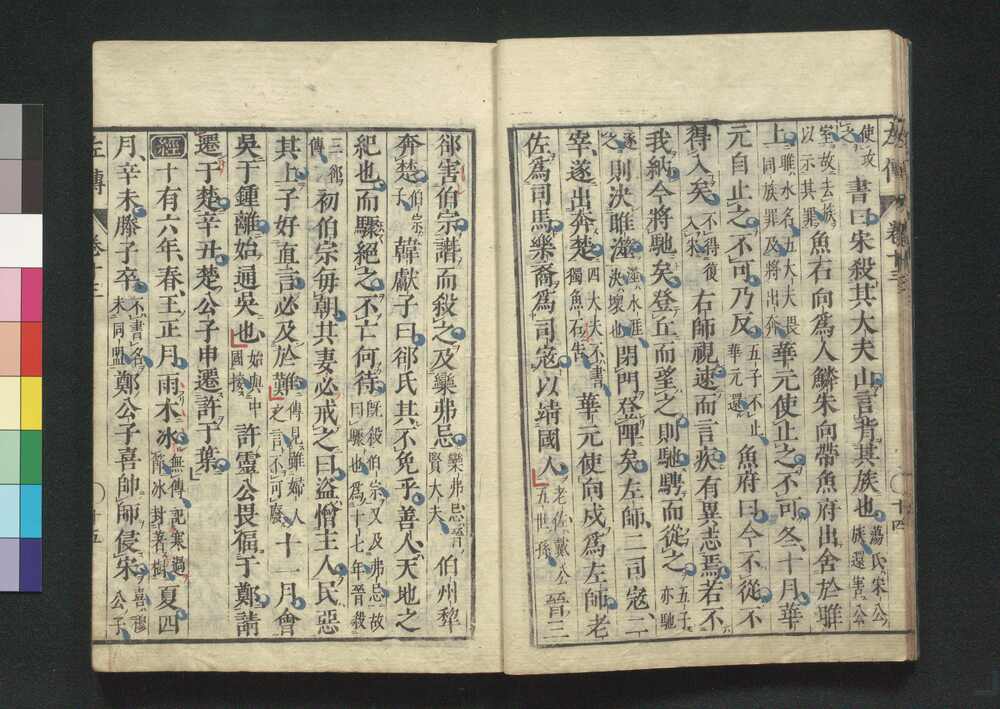 左傳 卷十三 十四
使攻之 書曰宋殺其大夫山言背其族也 蕩氏宋公族還害公
室故去族以示其罪 魚石向爲人鱗朱向帶魚府出舍於睢
上 睢水名五大夫畏同族罪及將出奔 華元使止之不可冬十月華
元自止之不可乃反 五子不止華元還 魚府曰今不從不
得入矣 不得復入宋 右師視速而言疾有異志焉若不
我納今將馳矣登丘而望之則馳騁而從之 五子亦馳
逐之 則決睢澨 澨水涯決壞也 閉門登陴矣左師二司寇二
宰遂出奔楚 四大夫不書獨魚石告 華元使向戌爲左師老
佐爲司馬樂裔爲司寇以靖國人 老佐戴公五世孫 晉三
郤害伯宗譖而殺之及欒弗忌 欒弗忌晉賢大夫 伯州犂
奔楚 伯宗子 韓獻子曰郤氏其不免乎善人天地之
紀也而驟絕之不亡何待 既殺伯宗又及弗忌故曰驟也爲十七年晉殺
三郤傳 初伯宗每朝其妻必戒之曰盜憎主人民惡
其上子好直言必及於難 傳見雖婦人之言不可廢 十一月會
吳于鍾離始通吳也 始與中國接 許靈公畏偪于鄭請
遷于楚辛丑楚公子申遷許于葉
經 十有六年春王正月雨木冰 無傳記寒過節冰封著樹 夏四
月辛未滕子卒 不書名未同盟 鄭公子喜帥師侵宋 喜穆公子
左傳 卷十三 十五